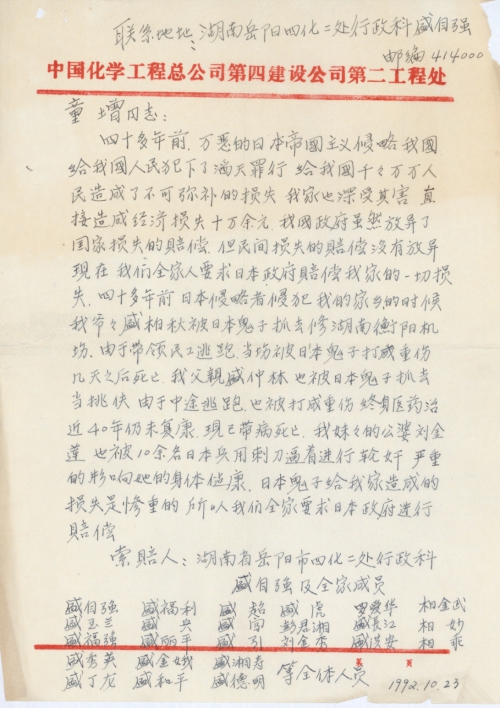 联系地址：湖南岳阳四化二处行政科盛自强
邮编 414000
中国化学工程总公司第四建设公司第二工程处
童增同志：
四十多年前，万恶的日本帝國主义侵略我國
给我國人民犯下了滔天罪行 给我國千千万万人
民造成了不可弥补的损失 我家也深受其害 直
接造成经济损失十万余元，我國政府虽然放弃了
国家损失的赔偿，但民间损失的赔偿没有放弃
现在 我们全家人要求日本政府赔偿我家的一切损
失，四十多年前日本侵略者侵犯我的家乡的时候
我爷々盛柏秋被日本鬼子抓去修湖南衡阳机
场，由于带领民工逃跑，当场被日本鬼子打成重伤
几天之后死亡，我父親盛仲林 也被日本鬼子抓去
当挑伕 由于中途逃跑，也被打成重伤 终身医药治
近40年仍未复康，现已带病死亡，我妹々的公婆刘金
莲 也被10余名日本兵用刺刀逼着进行轮奸 严重
的影响她的身体健康，日本鬼子给我家造成的
损失是惨重的 所以我们全家要求日本政府进行
赔偿
索賠人：湖南省岳阳市四化二处行政科
盛自强及全家成员
盛自强 盛福利 盛超 盛虎 爱华 柏金武
盛玉兰 盛兵 盛 彭思湘 盛長江 柏妙
盛福强 盛丽平 盛引 刘金本 盛俊安 柏乖
盛秀英 盛金娥 盛湘寿
盛丁龙 盛和平 盛德明 等全体人员
第 页
1992.10.23